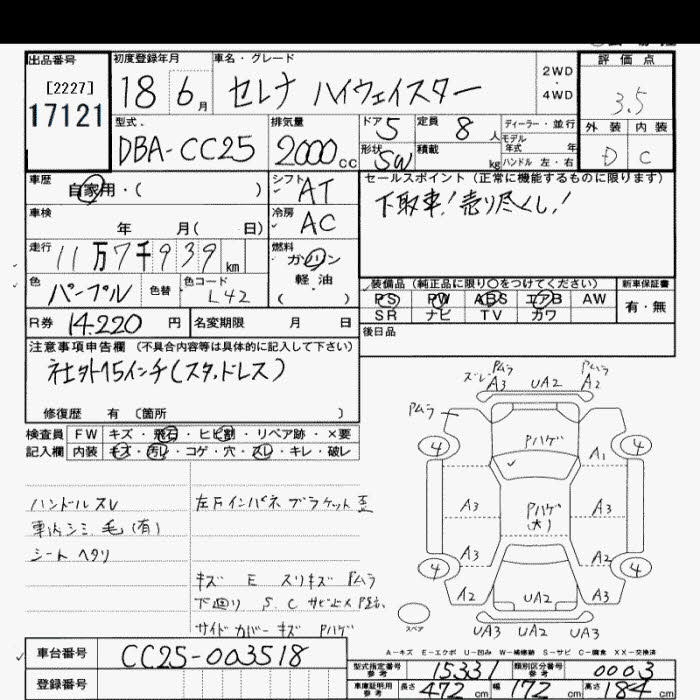 出品番号 初度登録年月 車名・グレード 評価点
[2227]
17121
18 6月 セレナ ハイウェイスター 2WD・4WD 3.5
型式 排気量 ドア 5 定員 8人 ディーラー・並行 外装 内装
DBA-CC25 2000cc 形状 SW 積載 kg モデル年式 年 ハンドル 左・右 D C
車歴 自家用・( ) シフト AT セールスポイント (正常に機能するものに限ります)
車検 年 月( 日) 冷房 AC 下取車!売り尽くし!
走行 11万7千939km 燃料 ガソリン 軽油 ( )
色 パープル 色替 色コード L42 装備品 (純正品に限り○をつけてください) 新車保証書
PS PW ABS エアB AW 有・無
SR ナビ TV カワ
R券 14.220円 名変期限 月 日 後日品
注意事項申告欄 (不具合内容等は具体的に記入して下さい)
社外15インチ(スタッドレス)
修復歴 有 〔箇所 〕
検査員 FW キズ・飛石・ヒビ割・リペア跡・×要
記入欄 内装 キズ・汚レ・コゲ・穴・スレ・キレ・破レ
ズレ Pムラ A3 UA2 Pムラ A2
Pムラ
4 Pハゲ 4
A1
A3 Pハゲ(大) A3
A3 A2
4 4
A2 UA2 A2
スペア UA3 UA2 UA3
ハンドルスレ 左フインパネ ブラケット歪
車内シミ 毛(有)
シート ヘタリ
キズ E スリキズ Pムラ
下廻り S.C サビ止メ
サイドカバーキズ Pハゲ
A-キズ E-エクボ U-凹み W-補修跡 S-サビ C-腐食 XX-交換済
車台番号 CC25-003518
登録番号
型式指定番号 参考 15331 類別区分番号 参考 0003
車庫証明用 参考 長さ 472cm 幅 172cm 高さ 184cm